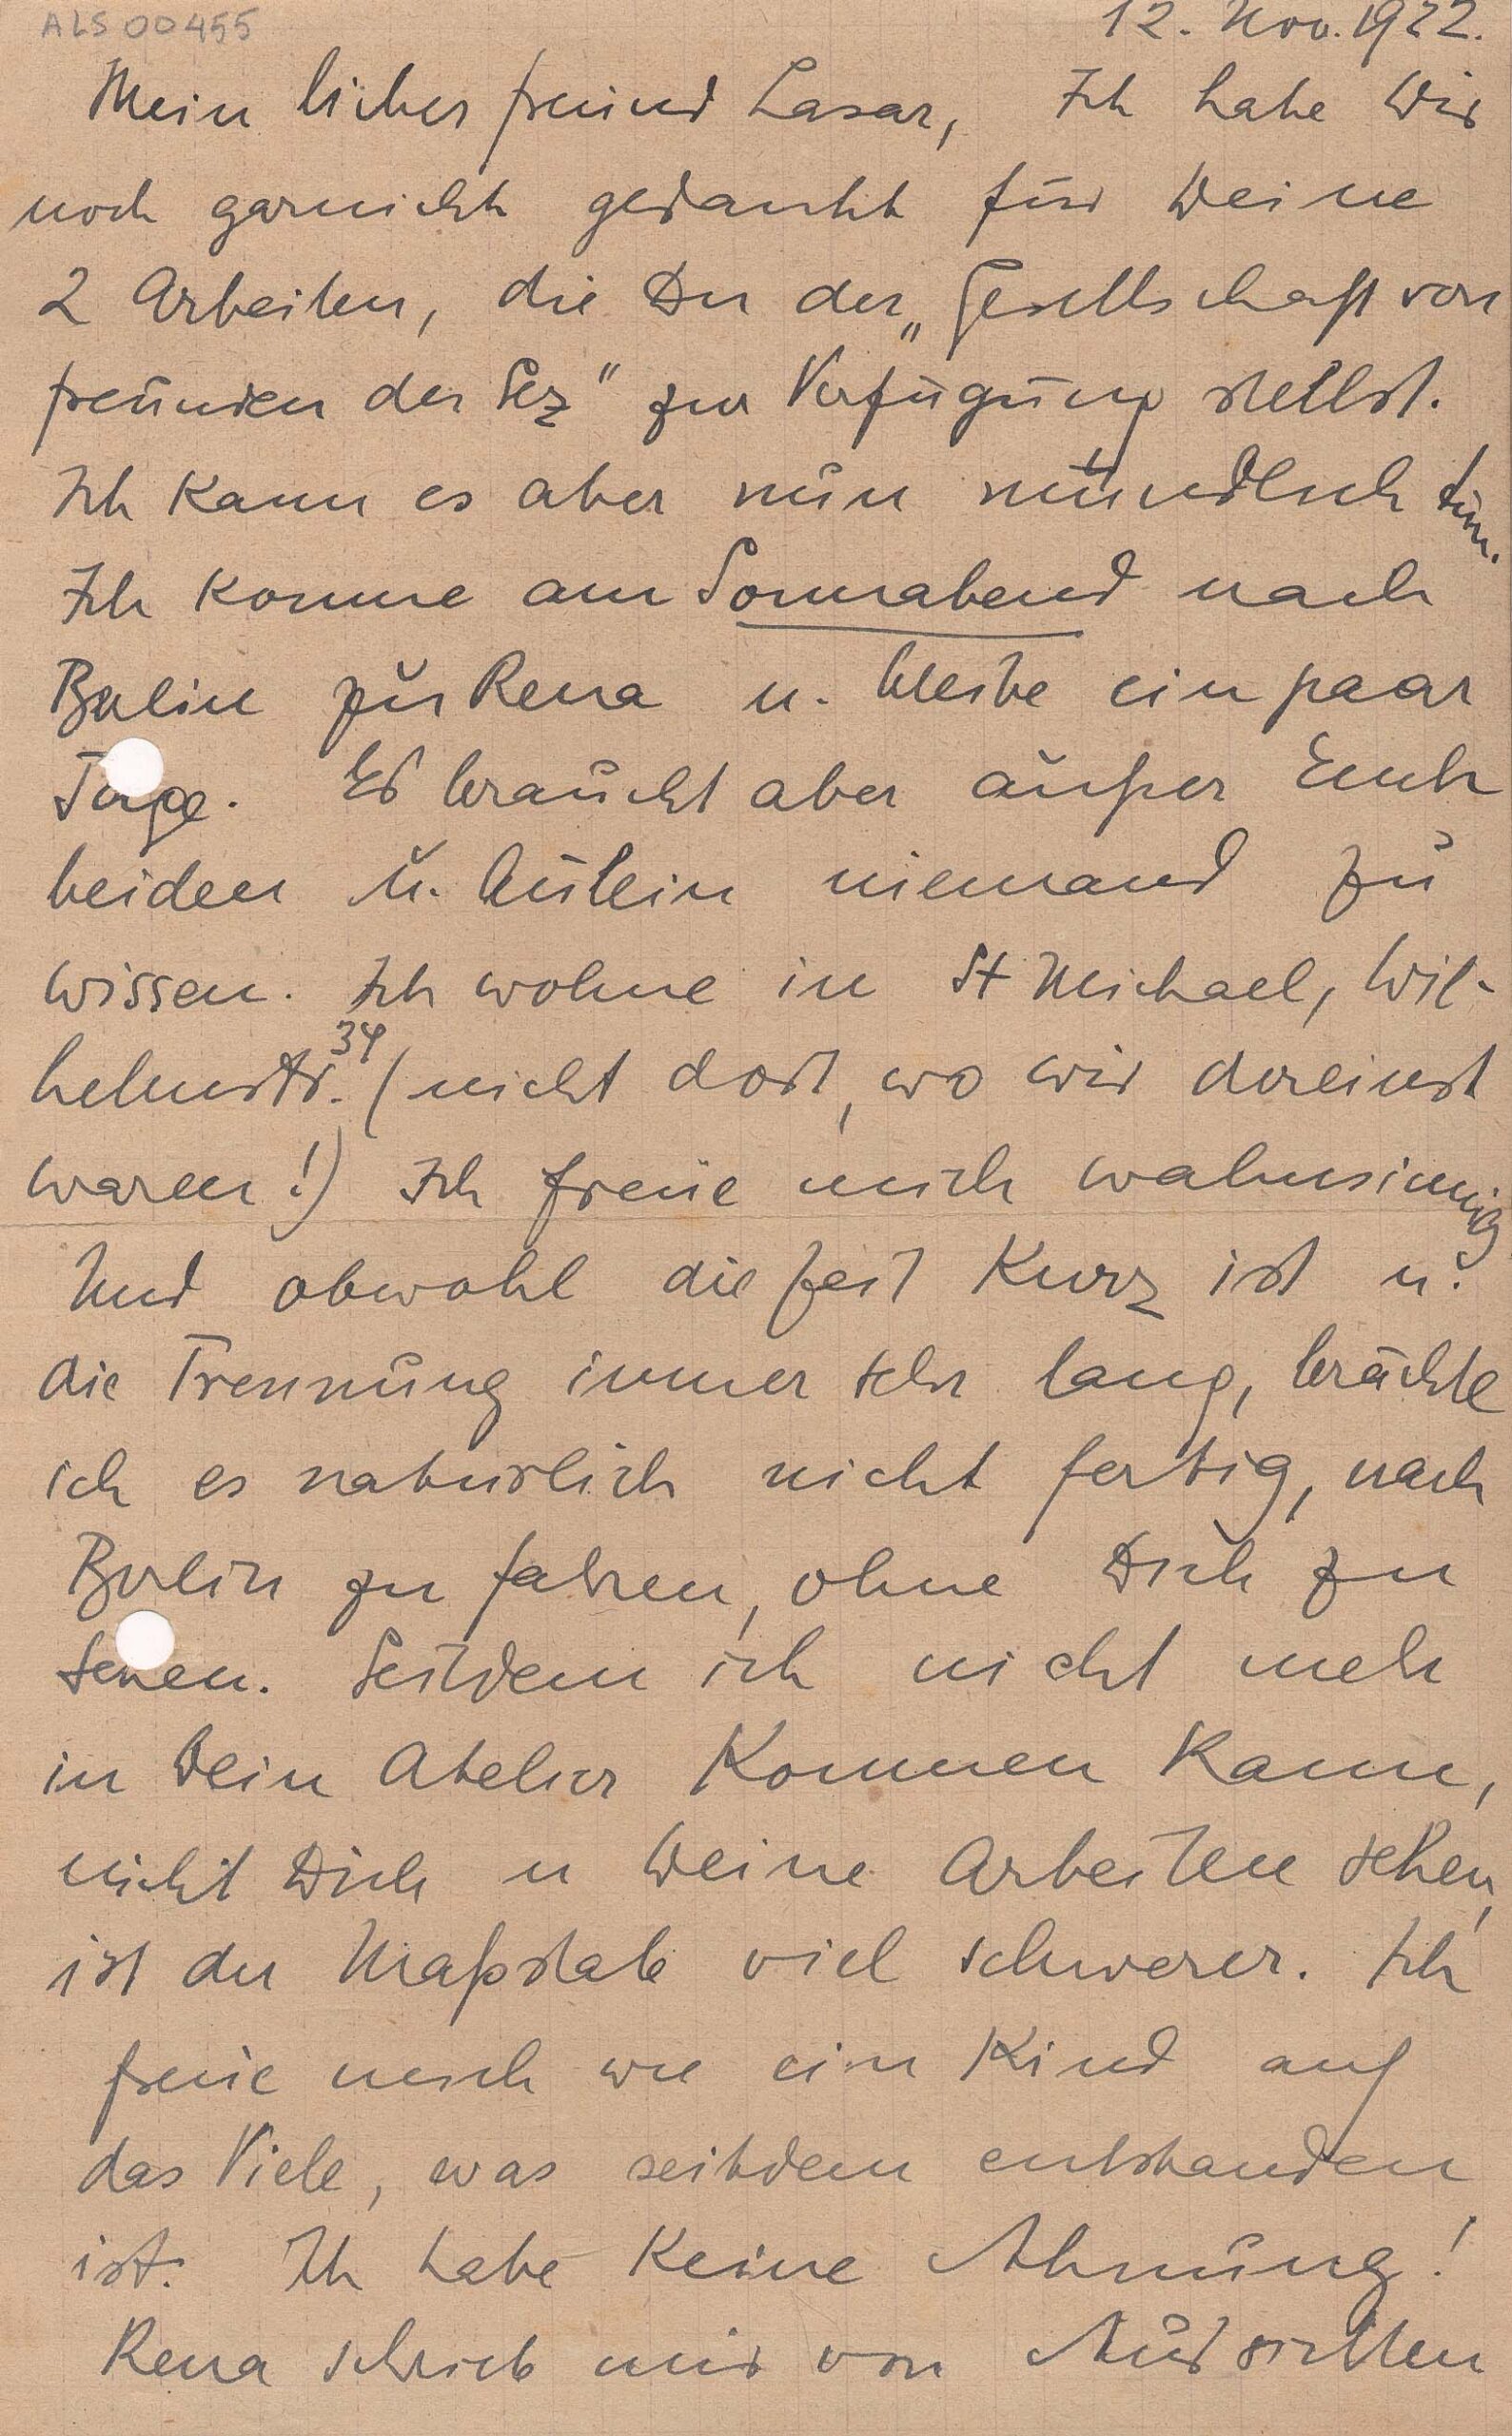 ALS 00455
12. Nov. 1922.
Mein lieber freund Lasar, Ich habe Dir
noch garnicht gedankt für Deine
2 Arbeiten, die Du der „Gesellschaft von
freunden der Sez" zur Verfügung stellst.
Ich kann es aber nun mündlich tun.
Ich komme am Sonnabend nach
Berlin zur Rena u. bleibe ein paar
Tage. Es braucht aber außer Euch
beiden u. niemand zu
wissen. Ich wohne in St Michael, Wil-
helmstr. 34 (nicht dort, wo wir dereinst
waren!) Ich freue mich wahnsinnig
Und obwohl die Zeit kurz ist u.
die Trennung immer sehr lang, brächte
ich es natürlich nicht fertig, nach
Berlin zu fahren, ohne Dich zu
sehen. Seitdem ich nicht mehr
in Dein Atelier kommen kann,
nicht Dich u Deine Arbeiten sehen,
ist der Maßstab viel schwerer. Ich
freue mich wie ein Kind auf
das Viele, was seitdem entstanden
ist. Ich habe keine Ahnung!
Rena schrieb mir von Aussichten